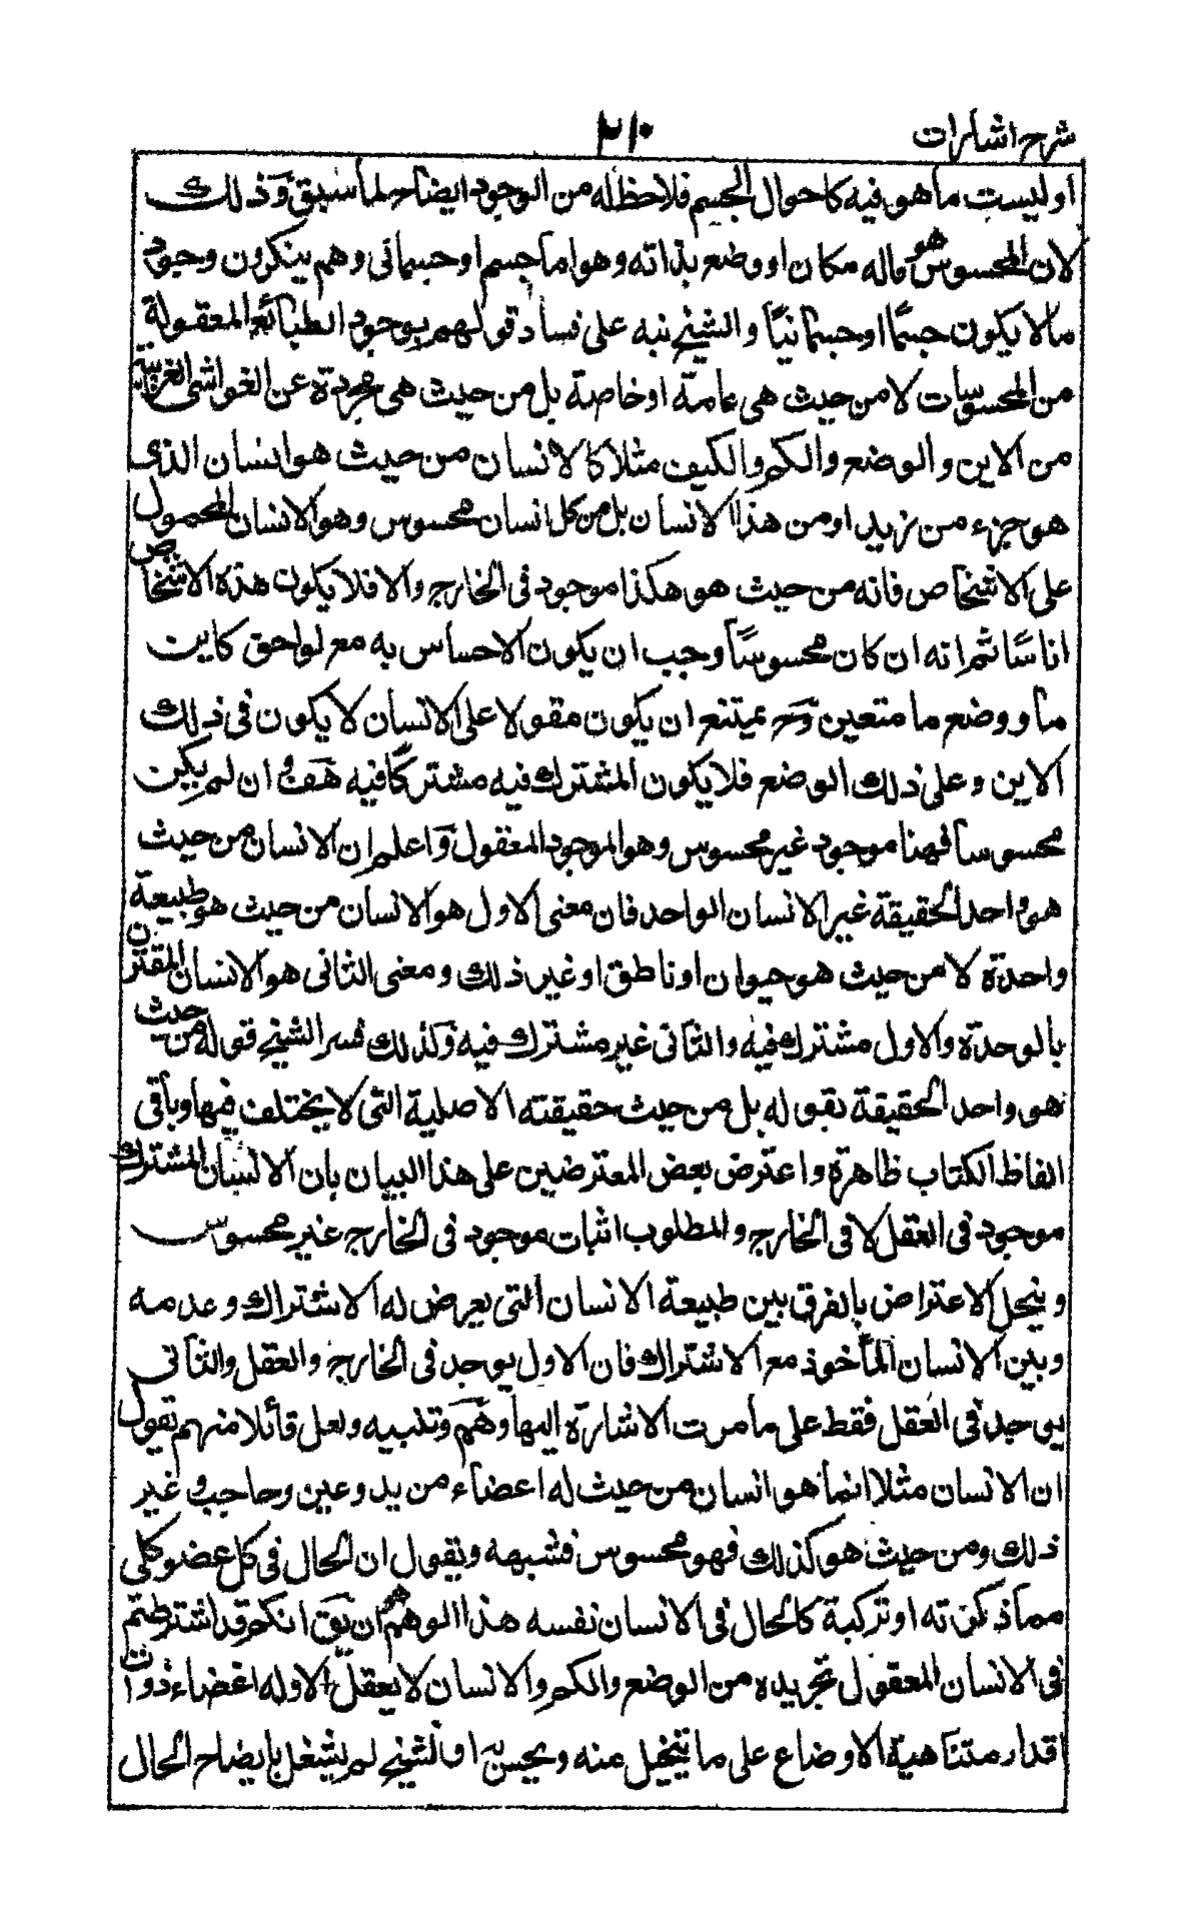 شرح اشارات ٢١٠
او ليست ما هو فيه كاحوال الجسم فلاحظ له من الوجود ايضا لما سبق وذلك
لان المحسوس هو ماله مكان او وضع بذاته وهو اما جسم او جسمانى وهم ينكرون وجود
مالا يكون جسمًا او جسمانيًا والشيخ نبه على فساد قولهم بوجود الطبائع المعقولة
من المحسوسات لا من حيث هى عامة او خاصة بل من حيث هى مجردة عن الغواشى الغريبة
من الاين والوضع والكم والكيف مثلا كالانسان من حيث هو انسان الذى
هو جزء من زيد او من هذا الانسان بل من كل انسان محسوس وهو الانسان المحمول
على الاشخاص فانه من حيث هو هكذا موجود فى الخارج والا فلا يكون هذه الاشخاص
اناسًا ثم انه ان كان محسوسًا وجب ان يكون الاحساس به مع لواحق كاين
ما ووضع ما متعين وح يمتنع ان يكون مقولا على الانسان لا يكون فى ذلك
الاين وعلى ذلك الوضع فلا يكون المشترك فيه مشتركًا فيه هف وان لم يكن
محسوسا فهنا موجود غير محسوس وهو الموجود المعقول واعلم ان الانسان من حيث
هو واحد الحقيقة غير الانسان الواحد فان معنى الاول هو الانسان من حيث هو طبيعة
واحدة لا من حيث هو حيوان او ناطق او غير ذلك ومعنى الثانى هو الانسان المقترن
بالوحدة والاول مشترك فيه والثانى غير مشترك فيه وكذلك فسر الشيخ قوله من حيث
هو واحد الحقيقة بقوله بل من حيث حقيقته الاصلية التى لا يختلف فيها وباقى
الفاظ الكتاب ظاهرة واعترض بعض المعترضين على هذا البيان بان الانسان المشترك
موجود فى العقل لا فى الخارج والمطلوب اثبات موجود فى الخارج غير محسوس
وينحل الاعتراض بالفرق بين طبيعة الانسان التى يعرض له الاشتراك وعدمه
وبين الانسان المأخوذ مع الاشتراك فان الاول يوجد فى الخارج والعقل والثانى
يوجد فى العقل فقط على ما مرت الاشارة اليها وهم وتنبيه ولعل قائلا منهم يقول
ان الانسان مثلا انما هو انسان من حيث له اعضاء من يد وعين وحاجب وغير
ذلك ومن حيث هو كذلك فهو محسوس فنبهه ونقول ان الحال فى كل عضو كلى
مما ذكرته او تركبة كالحال فى الانسان نفسه هذا الوهم هو ان يق انكم قد اشترطتم
فى الانسان المعقول تجريده من الوضع والكم والانسان لا يعقل الا وله اعضاء ذوات
اقدار متناهية الاوضاع على ما يتخيل منه ويحس به والشيخ لم يشغل بايضاح الحال